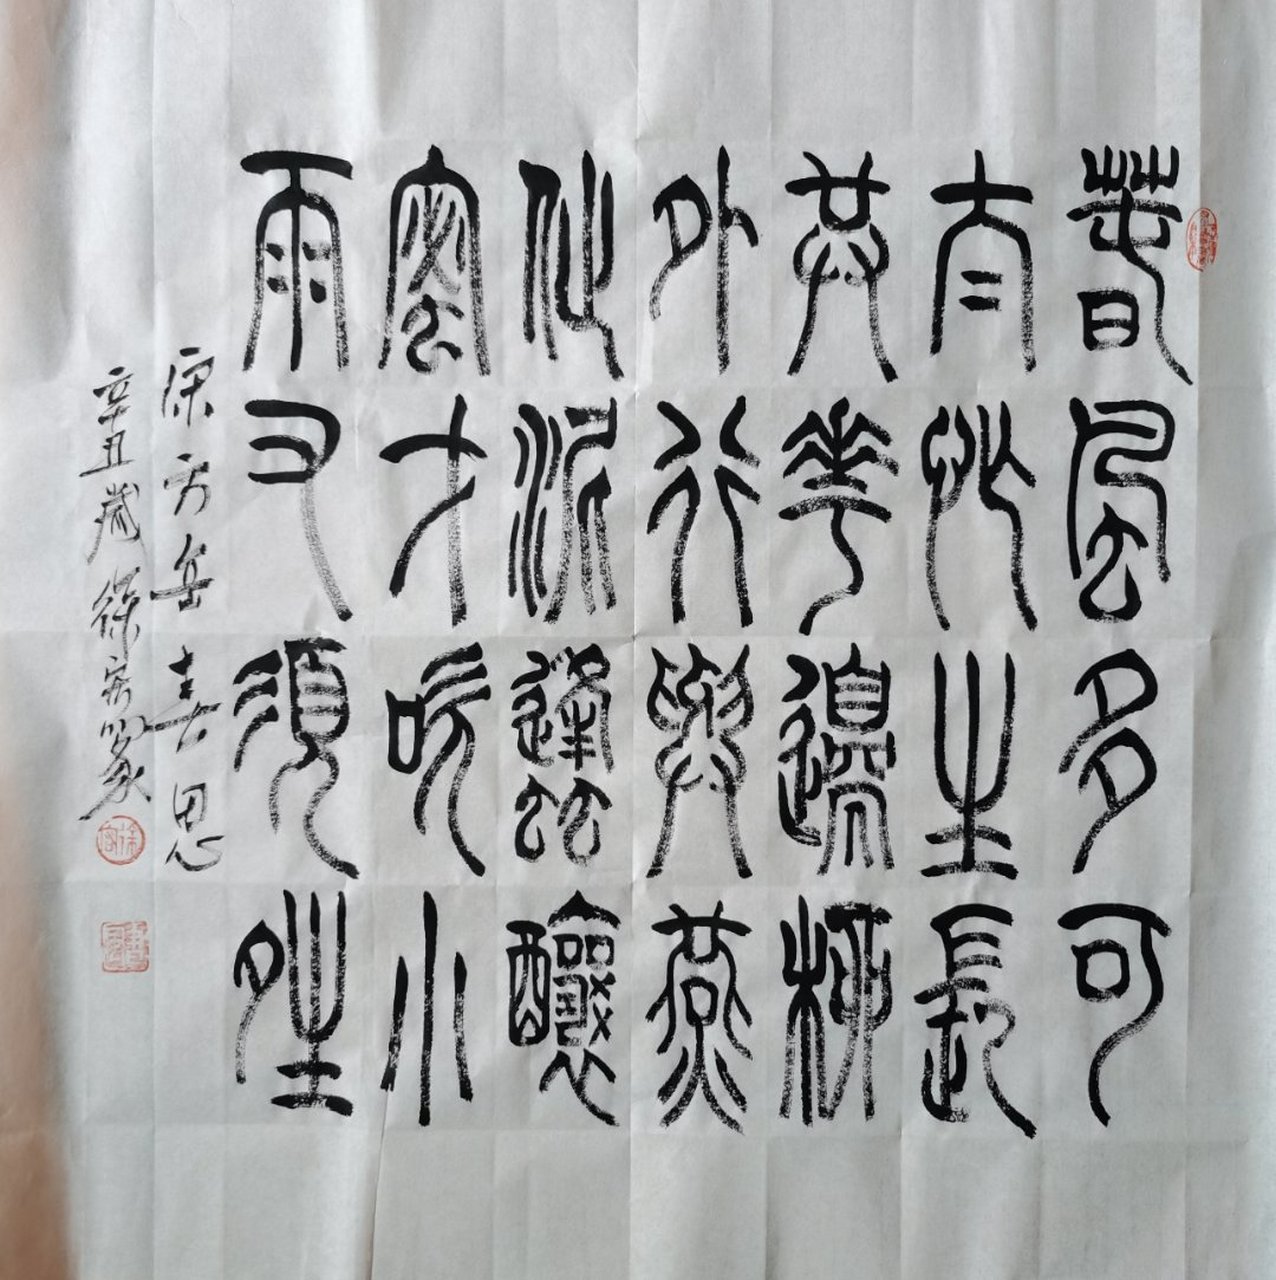 春風多可
太忙生長
共花邊柳
外行與燕
作泥蠭釀
蜜才吹小
雨又須晴
宋方岳春思
辛丑歲徐篆